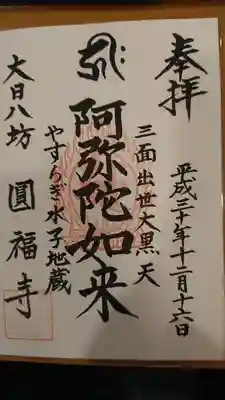 奉拝
平成三十年十二月十六日
三面出世大黒天
阿弥陀如来
やすらぎ水子地蔵
大日八坊
圓福寺